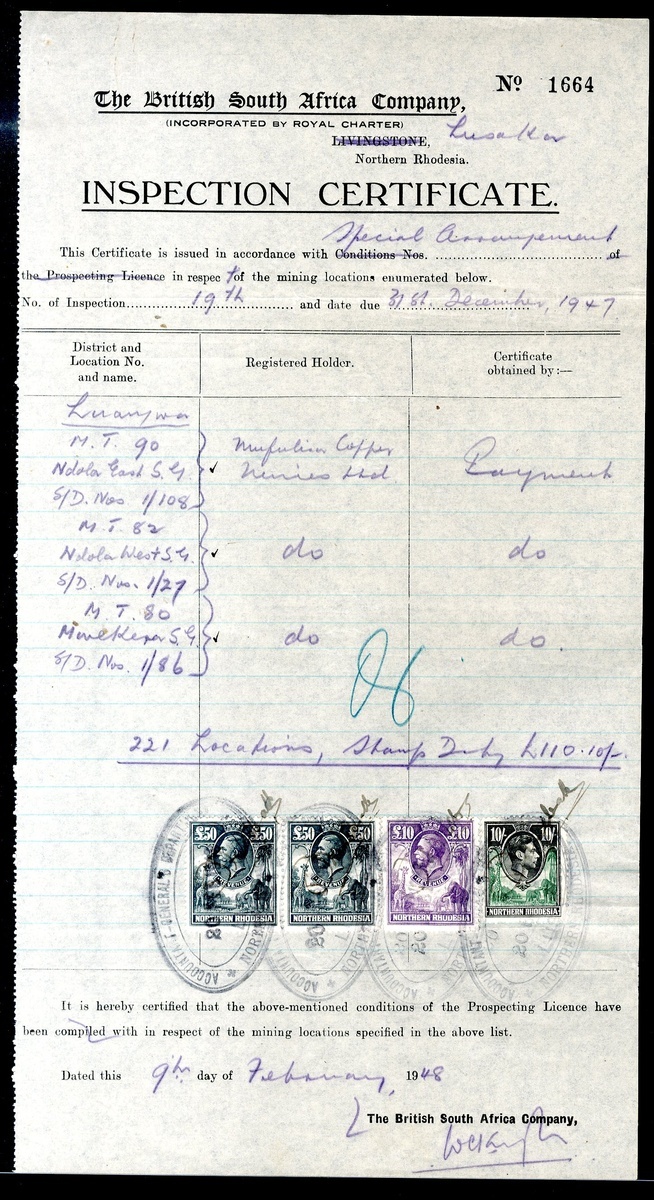 Nº 1664
The British South Africa Company,
(INCORPORATED BY ROYAL CHARTER)
LIVINGSTONE, Lusaka
Northern Rhodesia.
INSPECTION CERTIFICATE.
Special Arrangement
This Certificate is issued in accordance with Conditions Nos. of
the Prospecting Licence in respect of the mining locations enumerated below.
No. of Inspection 19th and date due 31st. December, 1947
District and Location No. and name.
Registered Holder.
Certificate obtained by:—
M.T. 90
Ndola East S.G. Mufulira Copper
S/D. Nos 1/108 Mines Ltd Payment
M.T. 82
Ndola West S.G. do do
S/D. Nos. 1/27
M.T. 80
S.G. do do.
S/D. Nos. 1/86
221 Locations, Stamp Duty £110.10/-
£50 £50 £50 £50 £10 £10 10/- 10/-
REVENUE REVENUE REVENUE
NORTHERN RHODESIA NORTHERN RHODESIA NORTHERN RHODESIA NORTHERN RHODESIA
It is hereby certified that the above-mentioned conditions of the Prospecting Licence have
been complied with in respect of the mining locations specified in the above list.
Dated this 9th day of February, 1948
The British South Africa Company,